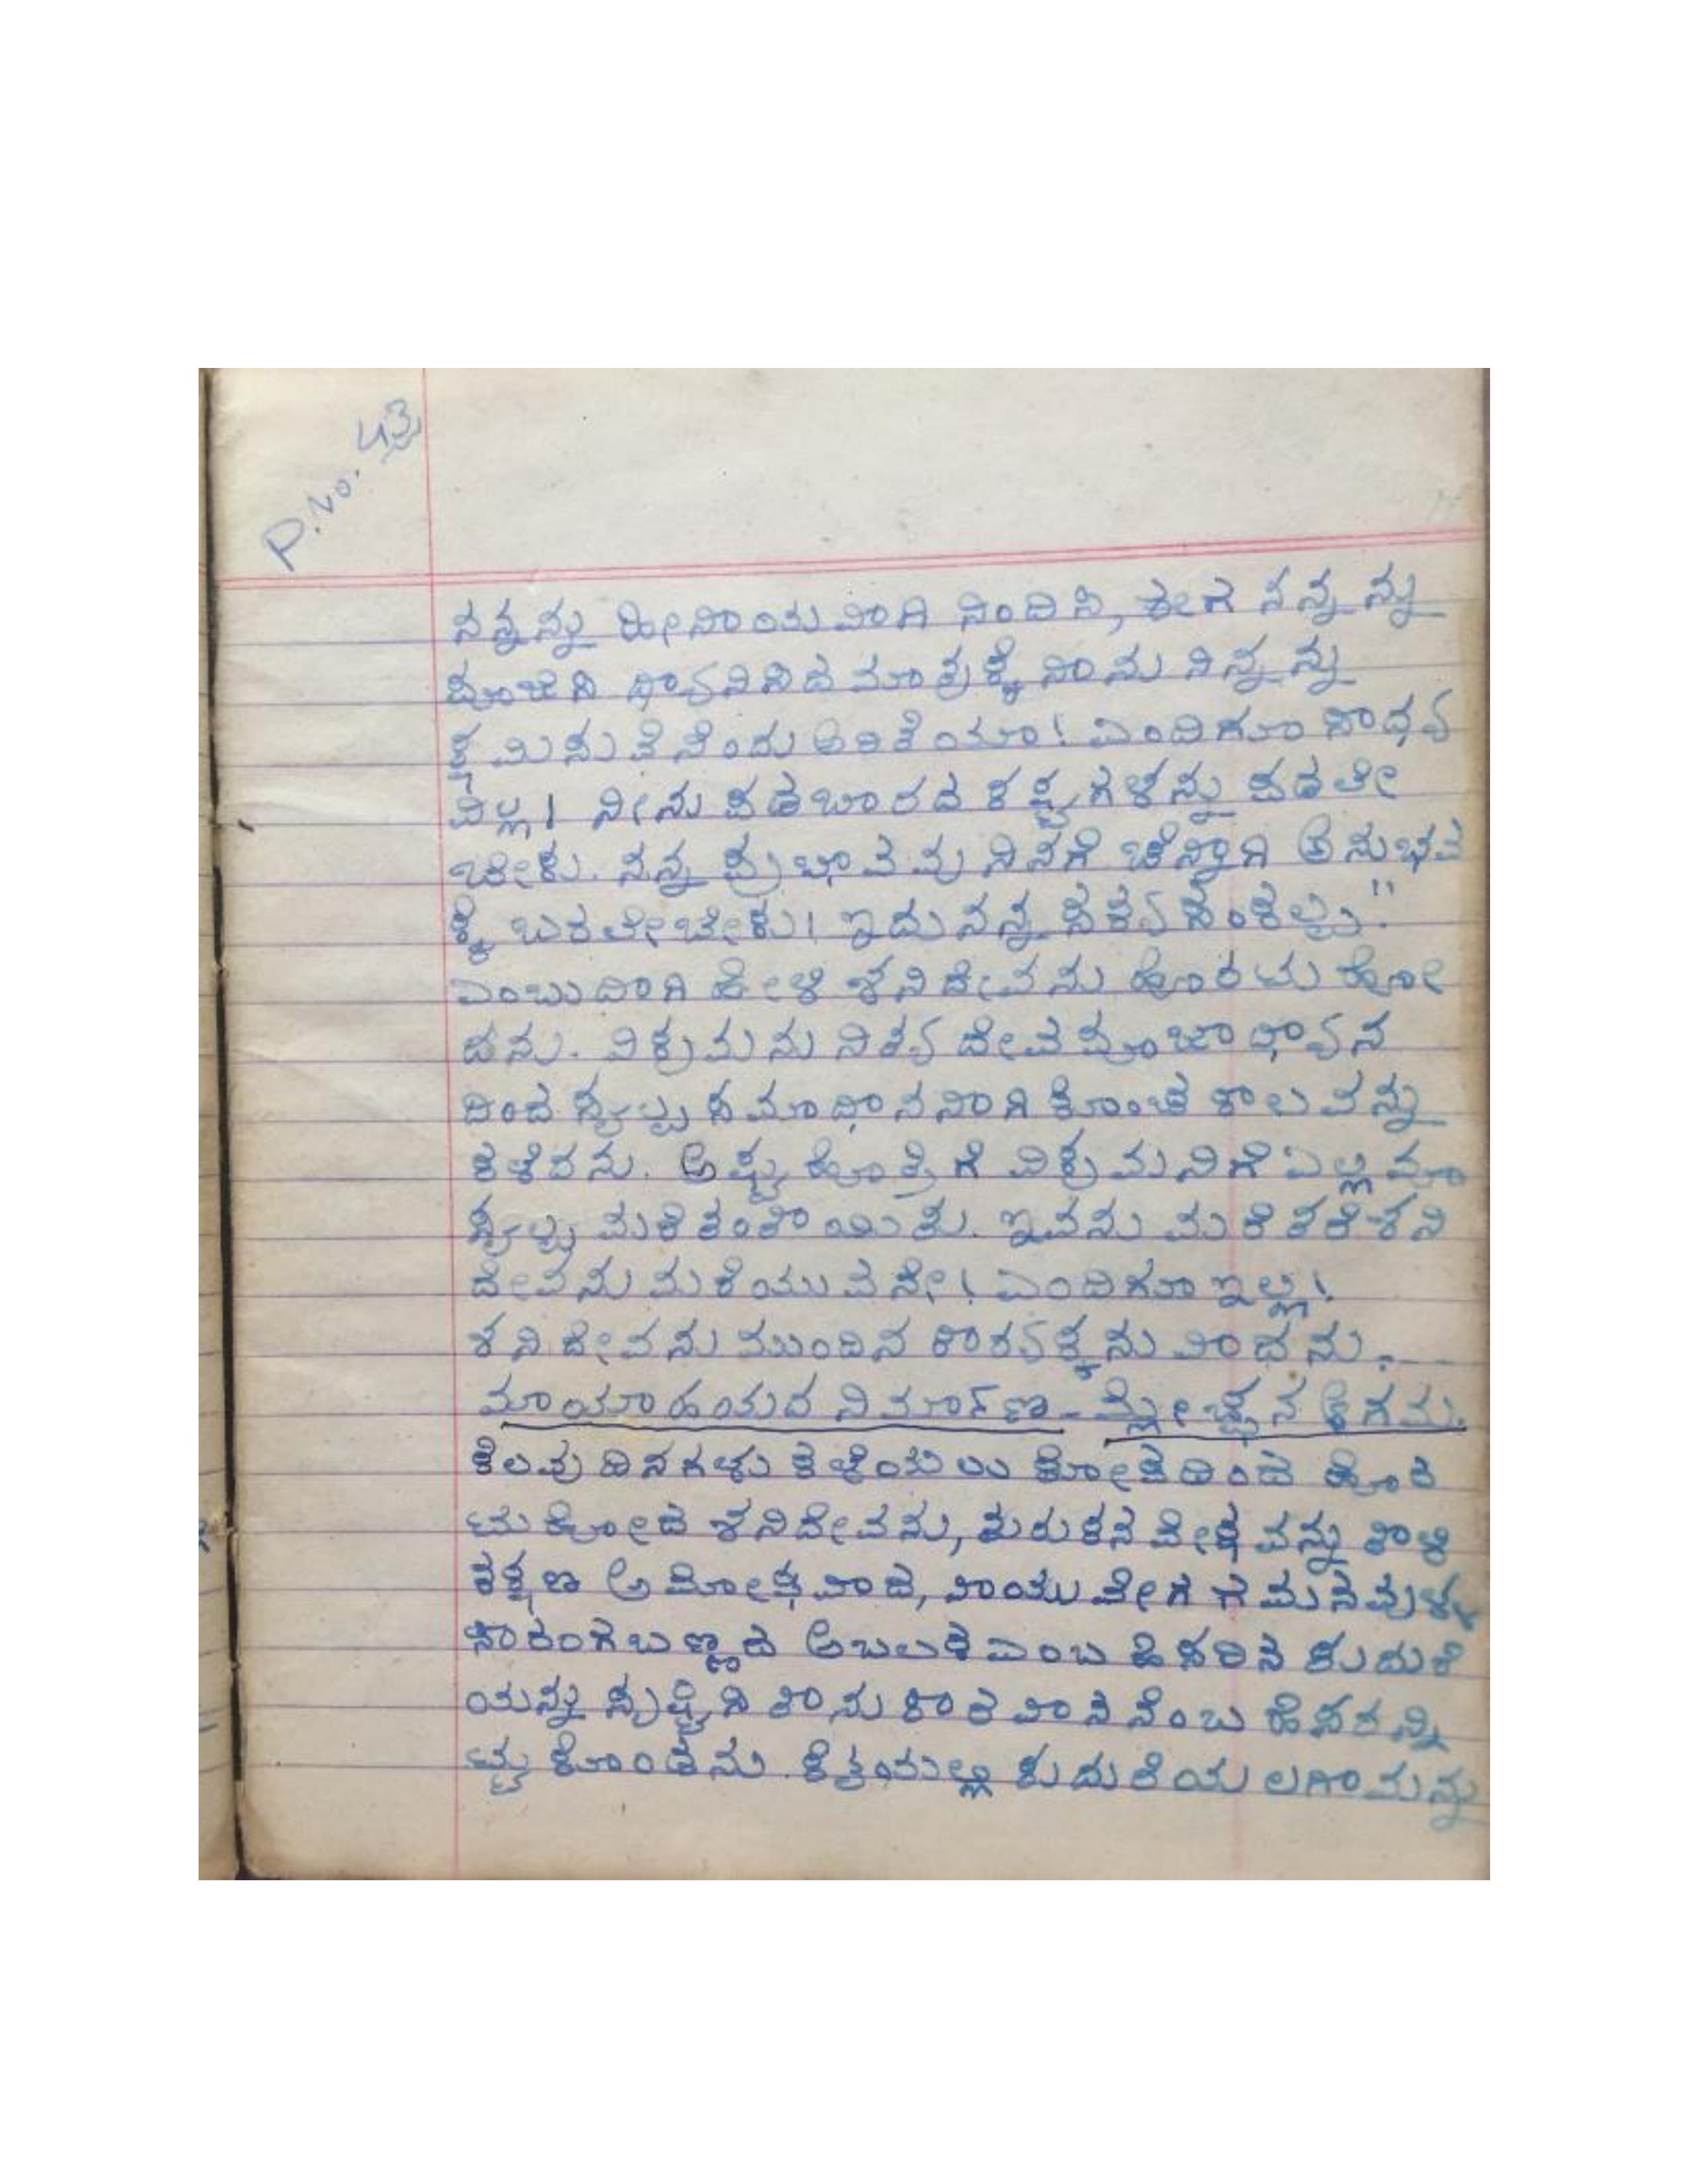 P.No. 43
ನನ್ನನ್ನು ಹೀನಾಯವಾಗಿ ನಿಂದಿಸಿ, ಈಗ ನನ್ನನ್ನು
ಪೂಜಿಸಿ ಧ್ಯಾನಿಸಿದ ಮಾತ್ರಕ್ಕೆ ನಾನು ನಿನ್ನನ್ನು
ಕ್ಷಮಿಸುವೆನೆಂದು ಅರಿಕೆಯಾ! ಎಂದಿಗೂ ಸಾಧ್ಯ
ವಿಲ್ಲ! ನೀನು ಪಡಬಾರದ ಕಷ್ಟಗಳನ್ನು ಪಡಲೇ
ಬೇಕು. ನನ್ನ ಪ್ರಭಾವವು ನಿನಗೆ ಚೆನ್ನಾಗಿ ಅನುಭವ
ಕ್ಕೆ ಬರಲೇಬೇಕು! ಇದು ನನ್ನ ಸತ್ಯಸಂಕಲ್ಪ"
ಎಂಬುದಾಗಿ ಹೇಳಿ ಶನಿದೇವನು ಹೊರಟು ಹೋ
ದನು. ವಿಕ್ರಮನು ನಿತ್ಯ ದೇವಪೂಜಾ ಧ್ಯಾನ
ದಿಂದ ಸ್ವಲ್ಪ ಸಮಾಧಾನನಾಗಿ ಕೊಂಚ ಕಾಲವನ್ನು
ಕಳೆದನು. ಅಷ್ಟು ಹೊತ್ತಿಗೆ ವಿಕ್ರಮನಿಗೆ ಎಲ್ಲವೂ
ಸ್ವಲ್ಪ ಮರೆತಂತಾಯಿತು. ಇವನು ಮರೆತರೆ ಶನಿ
ದೇವನು ಮರೆಯುವನೇ! ಎಂದಿಗೂ ಇಲ್ಲ!
ಶನಿದೇವನು ಮುಂದಿನ ಕಾರ್ಯಕ್ಕನುವಾದನು.
ಮಾಯಾಹಯದ ನಿರ್ಮಾಣ - ಮ್ಲೇಚ್ಛನ ಆಗಮ.
ಕೆಲವು ದಿನಗಳು ಕಳೆಯಲು ಕೋಪದಿಂದ ಹೊರ
ಟುಹೋದ ಶನಿದೇವನು, ತುರುಕನ ವೇಷವನ್ನು ತಾಳಿ
ತಕ್ಷಣ ಅಮೋಘವಾದ, ವಾಯುವೇಗ ಗಮನವುಳ್ಳ
ಸಾರಂಗಬಣ್ಣದ ಅಬಲಕ ಎಂಬ ಹೆಸರಿನ ಕುದುರೆ
ಯನ್ನು ಸೃಷ್ಟಿಸಿ ತಾನು ಕಾರವಾನನೆಂಬ ಹೆಸರನ್ನಿ
ಟ್ಟು ಕೊಂಡನು. ಕೈಯಲ್ಲಿ ಕುದುರೆಯ ಲಗಾಮನ್ನು